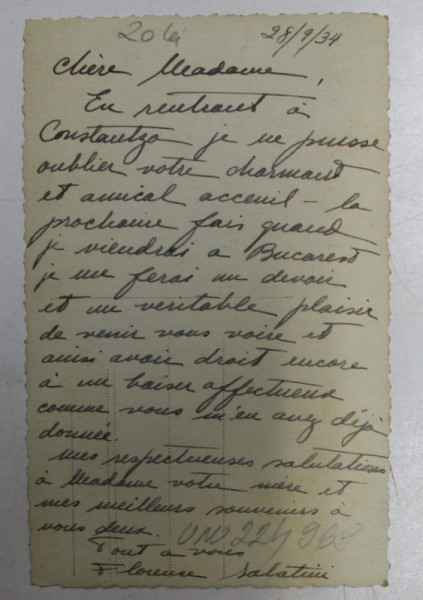 20 lei 28/9/34
Chère Madame,
En rentrant à
Constantza je ne puose
oublier votre charmant
et amical acceuil - la
prochaine fais quand
je viendrai a Bucarest
je me ferai un devoir
et un veritable plaisir
de venir vous voire et
ainsi avoir droit encore
à un baiser affectueux
comme vous m'en avez déjà
donnée.
Mes respectueuses salutations
à Madame votre mère et
mes meilleurs souvenirs à
vous deux.
Tout a vous
Florense Sabatini